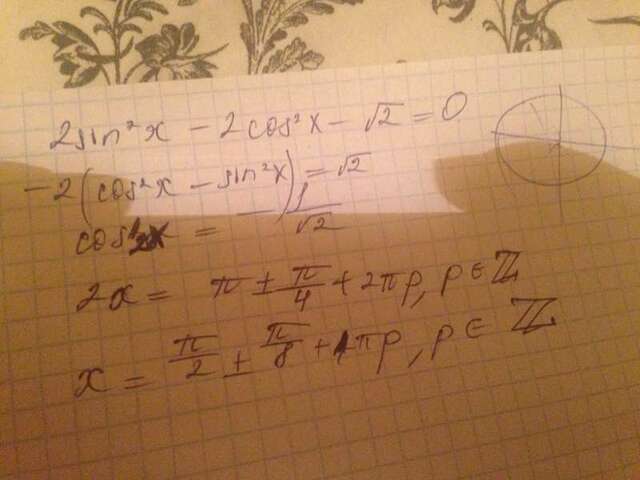 2sin²x − 2cos²x − √2 = 0
−2(cos²x − sin²x) = √2
cos2x = − 1/√2
2x = π ± π/4 + 2πp, p ∈ ℤ
x = π/2 ± π/8 + πp, p ∈ ℤ